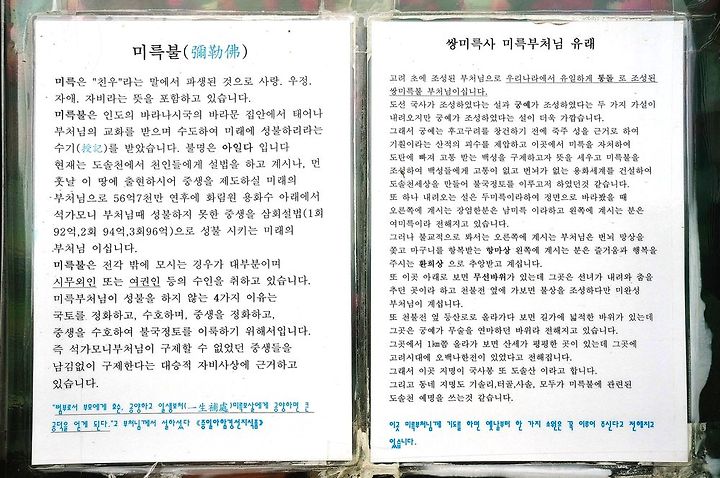 미륵불(彌勒佛)
미륵은 "친우"라는 말에서 파생된 것으로 사랑. 우정.
자애. 자비라는 뜻을 포함하고 있습니다.
미륵불은 인도의 바라나시국의 바라문 집안에서 태어나
부처님의 교화를 받으며 수도하여 미래에 성불하리라는
수기(授記)를 받았습니다. 불명은 아일다 입니다
현재는 도솔천에서 천인들에게 설법을 하고 계시나, 먼
훗날 이 땅에 출현하시어 중생을 제도하실 미래의
부처님으로 56억7천만 연후에 화림원 용화수 아래에서
석가모니 부처님때 성불하지 못한 중생을 삼회설법(1회
92억,2회 94억,3회96억)으로 성불 시키는 미래의
부처님 이십니다.
미륵불은 전각 밖에 모시는 경우가 대부분이며
시무외인 또는 여권인 등의 수인을 취하고 있습니다.
미륵부처님이 성불을 하지 않는 4가지 이유는
국토를 정화하고, 수호하며, 중생을 정화하고,
중생을 수호하여 불국정토를 이룩하기 위해서입니다.
즉 석가모니부처님이 구제할 수 없었던 중생들을
남김없이 구제한다는 대승적 자비사상에 근거하고
있습니다.
"범부로서 부모에게 효순, 공양하고 일생보처(一生補處)미륵보살에게 공양하면 큰
공덕을 얻게 된다."고 부처님께서 설하셨다 《증일아함경선지식품》
쌍미륵사 미륵부처님 유래
고려 초에 조성된 부처님으로 우리나라에서 유일하게 통돌 로 조성된
쌍미륵불 부처님이십니다.
도선 국사가 조성하였다는 설과 궁예가 조성하였다는 두 가지 가설이
내려오지만 궁예가 조성하였다는 설이 더욱 가깝습니다.
그래서 궁예는 후고구려를 창건하기 전에 죽주 성을 근거로 하여
기훤이라는 산적의 괴수를 제압하고 이곳에서 미륵을 자처하여
도탄에 빠져 고통 받는 백성을 구제하고자 뜻을 세우고 미륵불을
조성하여 백성들에게 고통이 없고 번뇌가 없는 용화세계를 건설하여
도솔천세상을 만들어 불국정토를 이루고자 하였던것 같습니다.
또 하나 내려오는 설은 두미륵이라하여 정면으로 바라봤을 때
오른쪽에 계시는 장엄한분은 남미륵 이라하고 왼쪽에 계시는 분은
여미륵이라 전해지고 있습니다.
그러나 불교적으로 봐서는 오른쪽에 계시는 부처님은 번뇌 망상을
쫓고 마구니를 항복받는 항마상 왼쪽에 계시는 분은 즐거움과 행복을
주시는 환희상 으로 추앙받고 계십니다.
또 이곳 아래로 보면 무선바위가 있는데 그곳은 선녀가 내려와 춤을
추던 곳이라 하고 천불전 옆에 가보면 불상을 조성하다만 미완성
부처님이 계십니다.
또 천불전 옆 등산로로 올라가다 보면 길가에 넓적한 바위가 있는데
그곳은 궁예가 무술을 연마하던 바위라 전해지고 있습니다.
그곳에서 1km쯤 올라가 보면 산세가 평평한 곳이 있는데 그곳에
고려시대에 오백나한전이 있었다고 전해집니다.
그래서 이곳 지명이 국사봉 또 도솔산 이라고 합니다.
그리고 동네 지명도 기솔리,터골,사솔, 모두가 미륵불에 관련된
도솔천 예명을 쓰는것 같습니다.
이곳 미륵부처님께 기도를 하면 옛날부터 한 가지 소원은 꼭 이루어 주신다고 전해지고
있습니다.